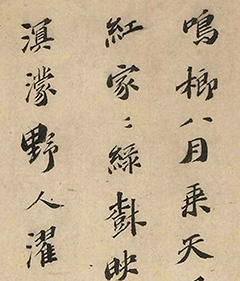 鳴榔八月乘天
紅家〻綠樹映
溟濛野人濯